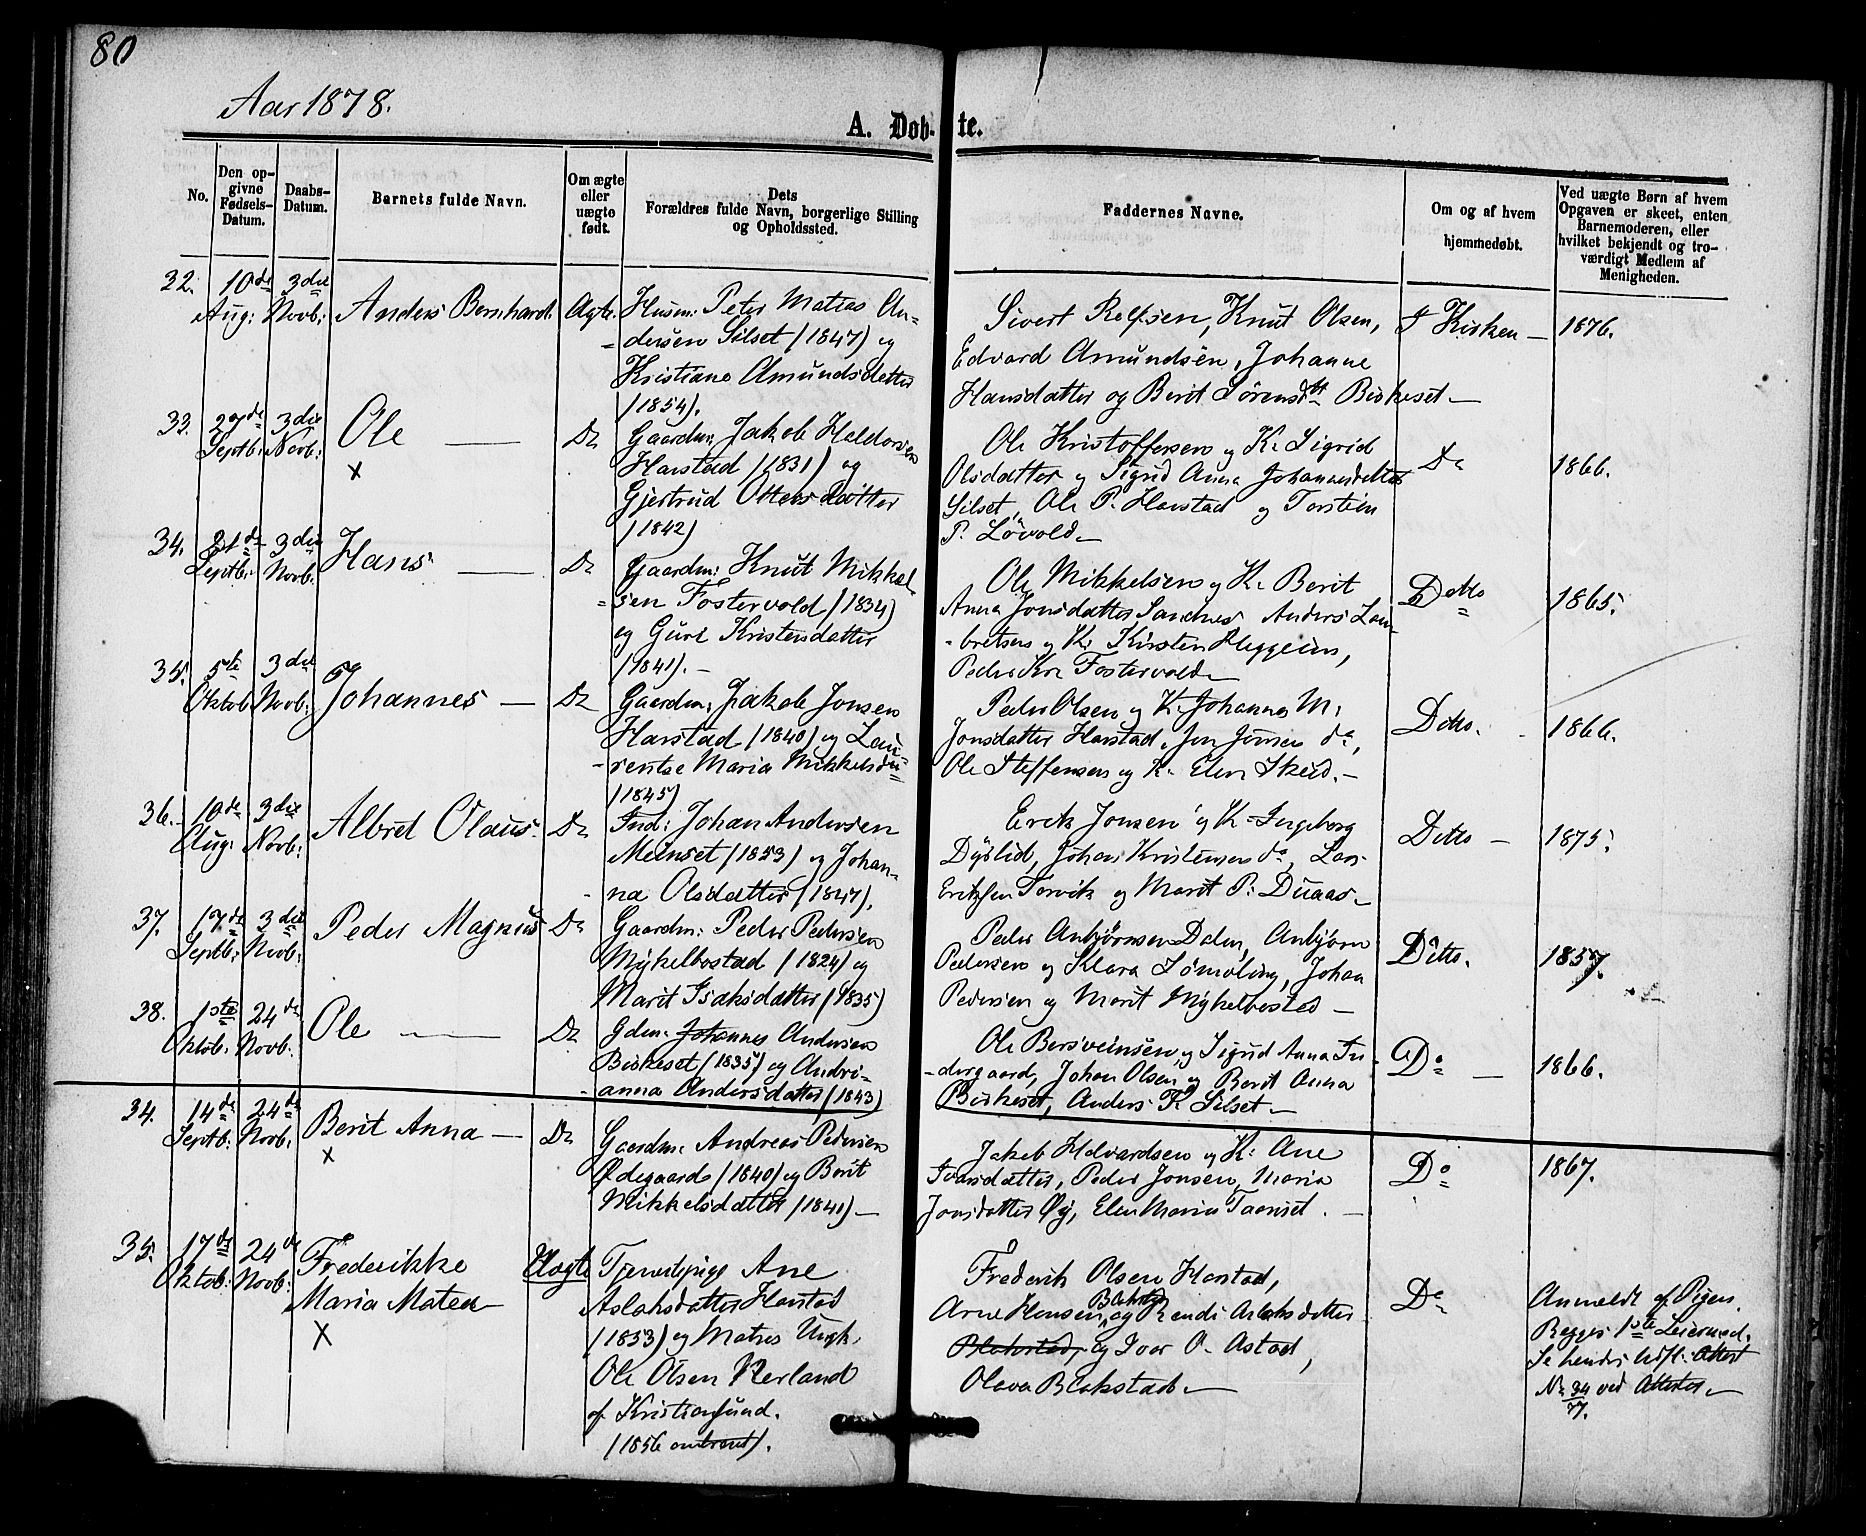 80
Aar 1878.
A. Døb- te.
No.
Den op-
givne
Fødsels-
Datum.
Daabs-
Datum.
Barnets fulde Navn.
Om ægte
eller
uægte
født.
Dets
Forældres fulde Navn, borgerlige Stilling
og Opholdssted.
Faddernes Navne.
Om og af hvem
hjemmedøbt.
Ved uægte Børn af hvem
Opgaven er skeet, enten
Barnemoderen, eller
hvilket bekjendt og tro-
værdigt Medlem af
Menigheden.
32.
10de
Aug:
3die
Novb:
Anders Bernhard.
Ægte.
Husm: Peter Matias An-
dersen Silset (1847) og
Kristiane Amundsdatter
(1854).
Sivert Rolfsen, Knut Olsen,
Edvard Amundsen, Johanne
Hansdatter og Berit Sørensdtr Birkeset
I Kirken
1876.
33.
27de
Septb:
3die
Novb:
Ole
x
Do
Gaardm: Jakob Haldorsen
Harstad (1831) og
Gjertrud Ottersdatter
(1842)
Ole Kristoffersen og K. Sigrid
Olsdatter og Sigrid Anna Johannesdatter
Silset, Ole P. Harstad og Torstein
P. Løvold
Do
1866.
34.
21de
Septb:
3die
Novb:
Hans
Do
Gaardm: Knut Mikkel-
sen Fostervold (1834)
og Guri Kristensdatter
(1841).
Ole Mikkelsen og K. Berit
Anna Jonsdatter Sandnes Anders Lam-
bretsen og K. Kirsten Heggeim,
Peder Kr. Fostervold
Ditto
1865.
35.
5te
Oktob
3die
Novb:
Johannes
Do
Gaardm: Jakob Jonsen
Harstad (1840) og Lau-
rentse Maria Mikkelsdtr
(1845)
Peder Olsen og K. Johanna M:
Jonsdatter Harstad, Jon Jonsen do,
Ole Steffensen og K. Elen Skeid.
Ditto.
1866.
36.
10de
Aug:
3die
Novb:
Albret Olaus
Do
Ind: Johan Andersen
Meinset (1853) og Johan-
na Olsdatter (1847).
Erik Jonsen og K. Ingeborg
Dyslid, Johan Kristensen do, Lars
Eriksen Torvik og Marit P: Duaas
Ditto
1875.
37.
17de
Septb:
3die
Novb:
Peder Magnus
Do
Gaardm: Peder Pedersen
Mykelbostad (1824) og
Marit Isaksdatter (1835)
Peder Anbjørnsen Dalen, Anbjørn
Pedersen og Klara Sømoling, Johan
Pedersen og Marit Mykelbostad
Ditto.
1857.
38.
1ste
Oktob:
24de
Novb:
Ole
Do
Gdm: Johannes Andersen
Birkeset (1835) og Andri-
anna Andersdatter (1843)
Ole Bersveinsen og Sigrid Anna In-
dergaard, Johan Olsen og Berit Anna
Birkeset, Anders K Silset
Do
1866.
34.
14de
Septb:
24de
Novb:
Berit Anna
x
Do
Gaardm: Andreas Pedersen
Ødegaard (1840) og Berit
Mikkelsdatter (1841)
Jakob Halvardsen og K: Ane
Ivarsdatter, Peder Jonsen, Maria
Jonsdatter Øy, Elen Maria Taanset.
Do
1867.
35.
17de
Oktob:
24de
Novb:
Frederikke
Maria Matea
X
Uægte
Tjenestpige Ane
Aslaksdatter Harstad
(1853) og Matros Ungk.
Ole Olsen Nerland
af Kristiansund.
(1856 omtrent).
Frederik Olsen Harstad,
Arne Hansen Blakstad og Randi Aslaksdatter
Blakstad, og Ivar O. Astad,
Olava Blakstad
Do
Anmeldt af Pigen.
Begges 1ste Leiermaal.
Se hendes Udfl: Attest
No 34/77 ved Attester